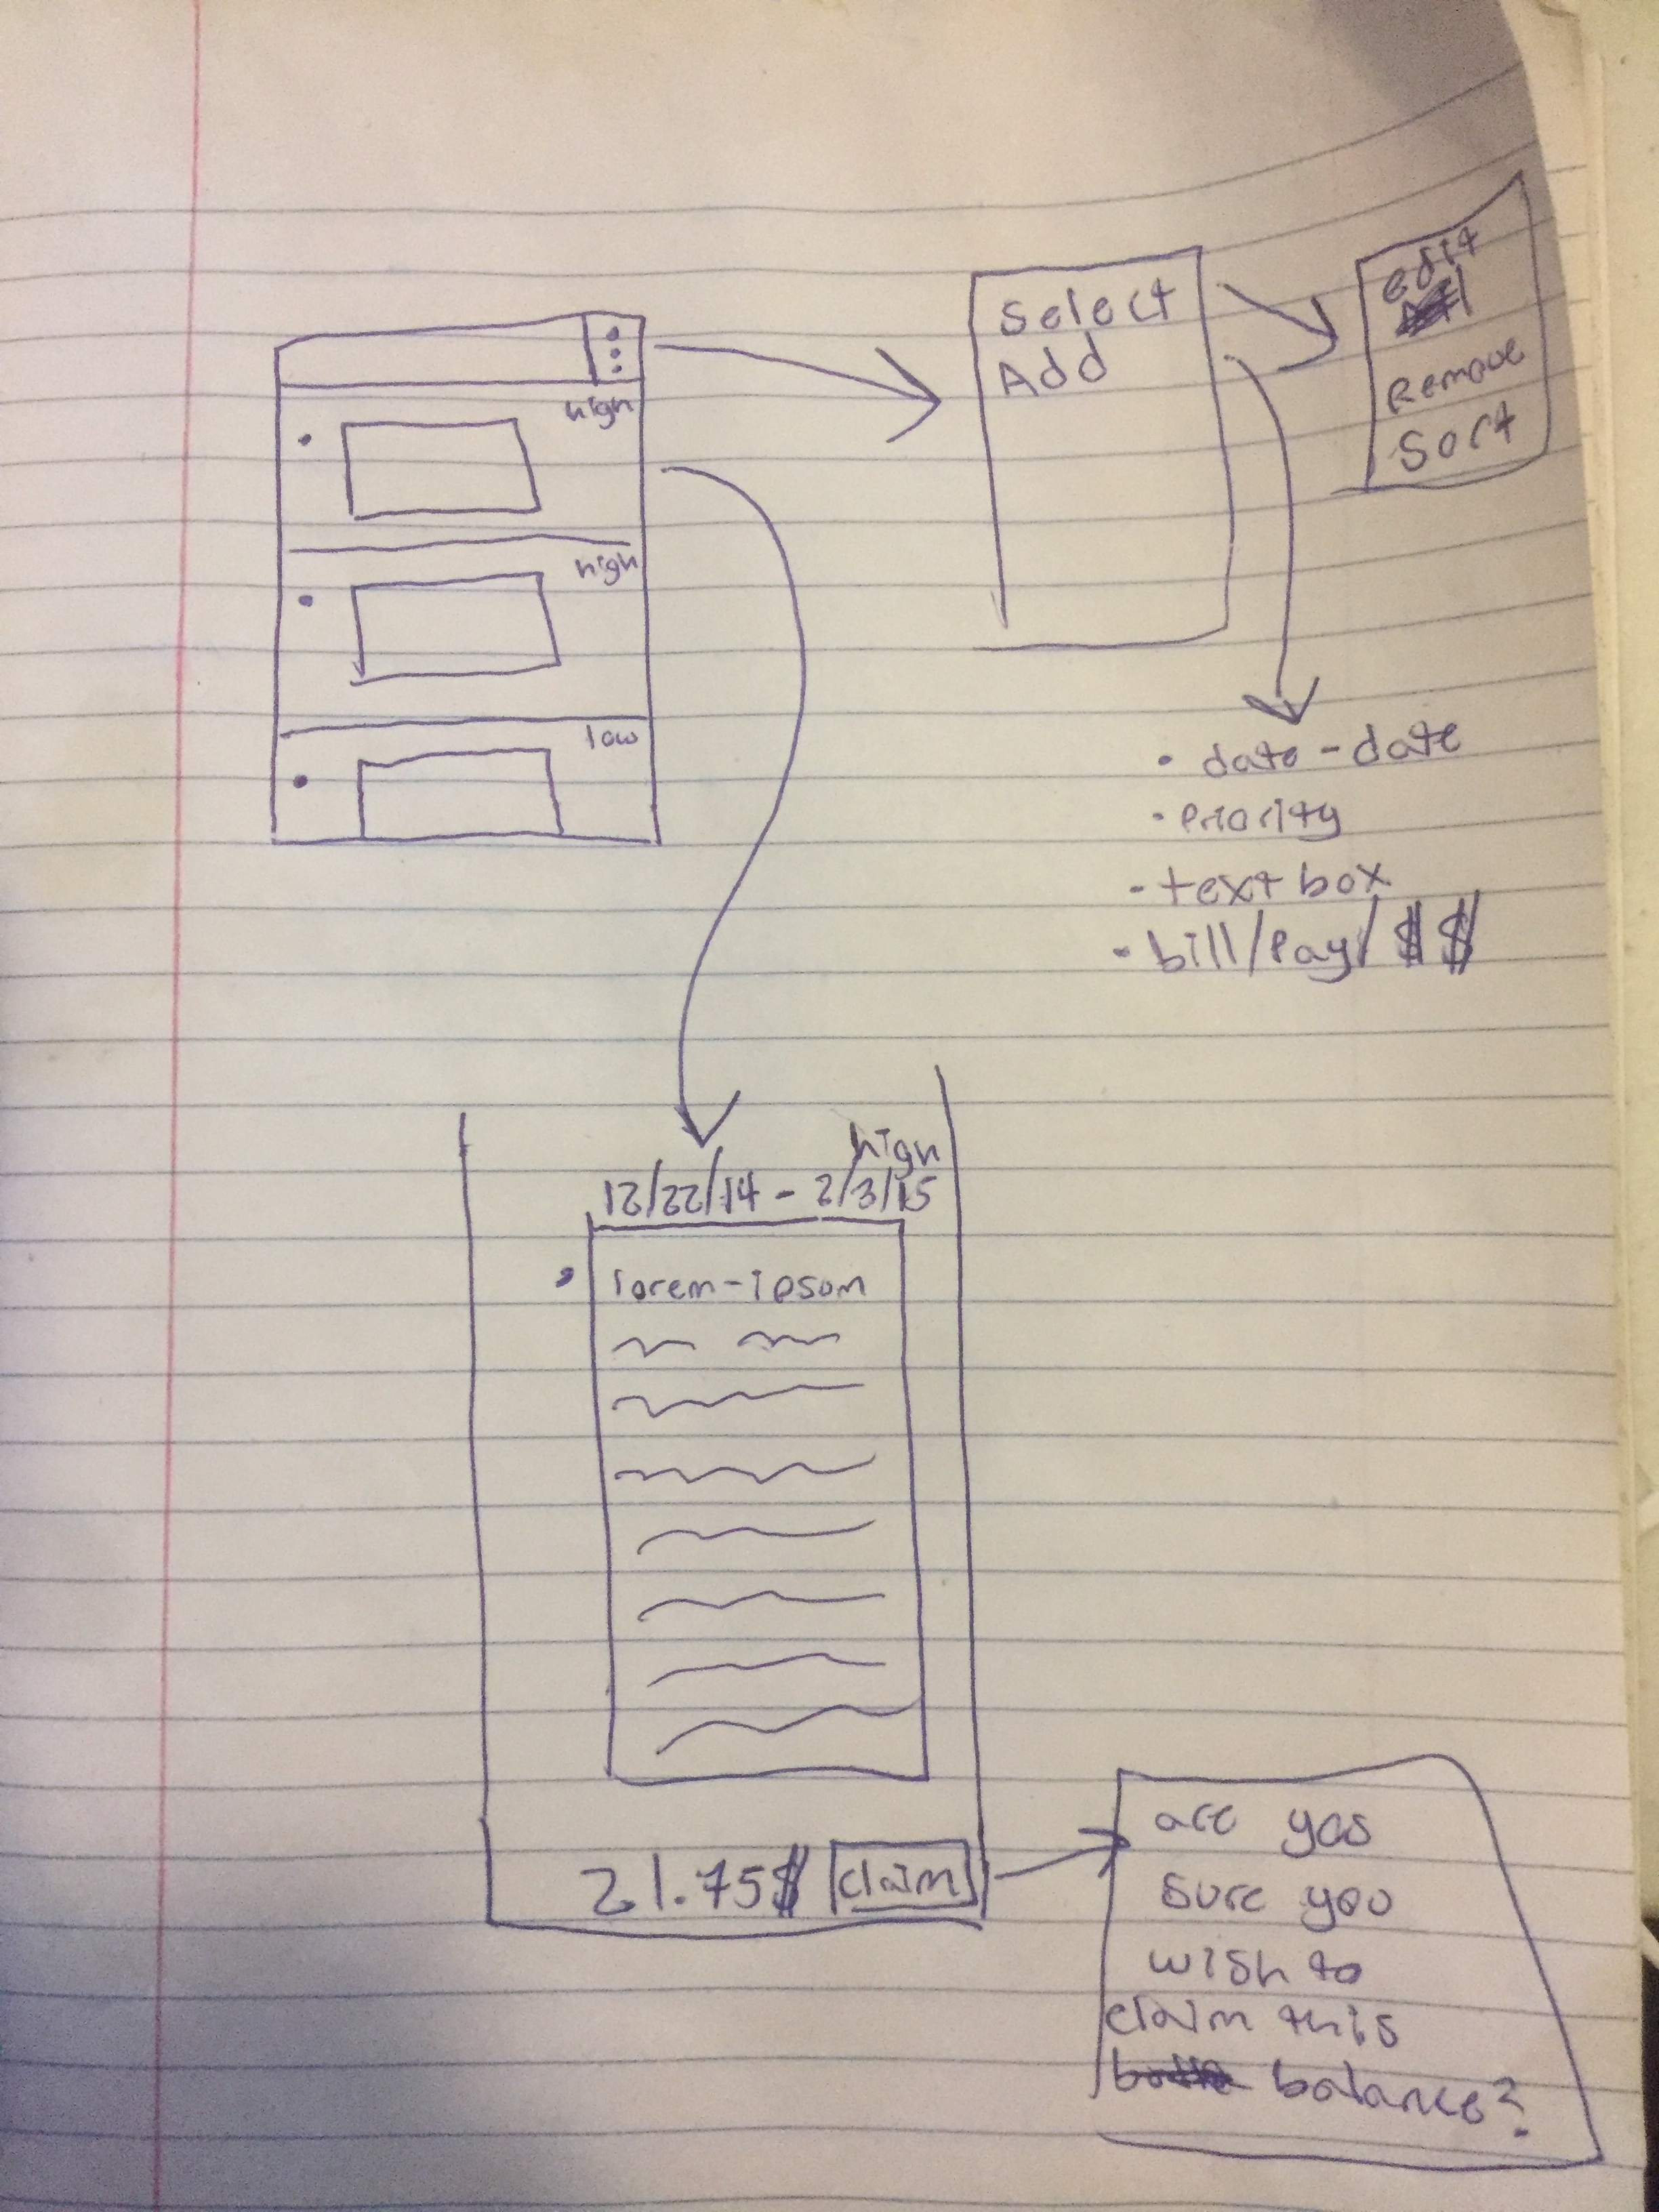 high
high
low
Select
Add
edit
Remove
Sort
• date - date
• Priority
- text box
• bill/Pay/$$
high
12/22/14 - 2/3/15
• lorem-ipsom
21.75$ claim
are yos
sure you
wish to
claim this
balance?